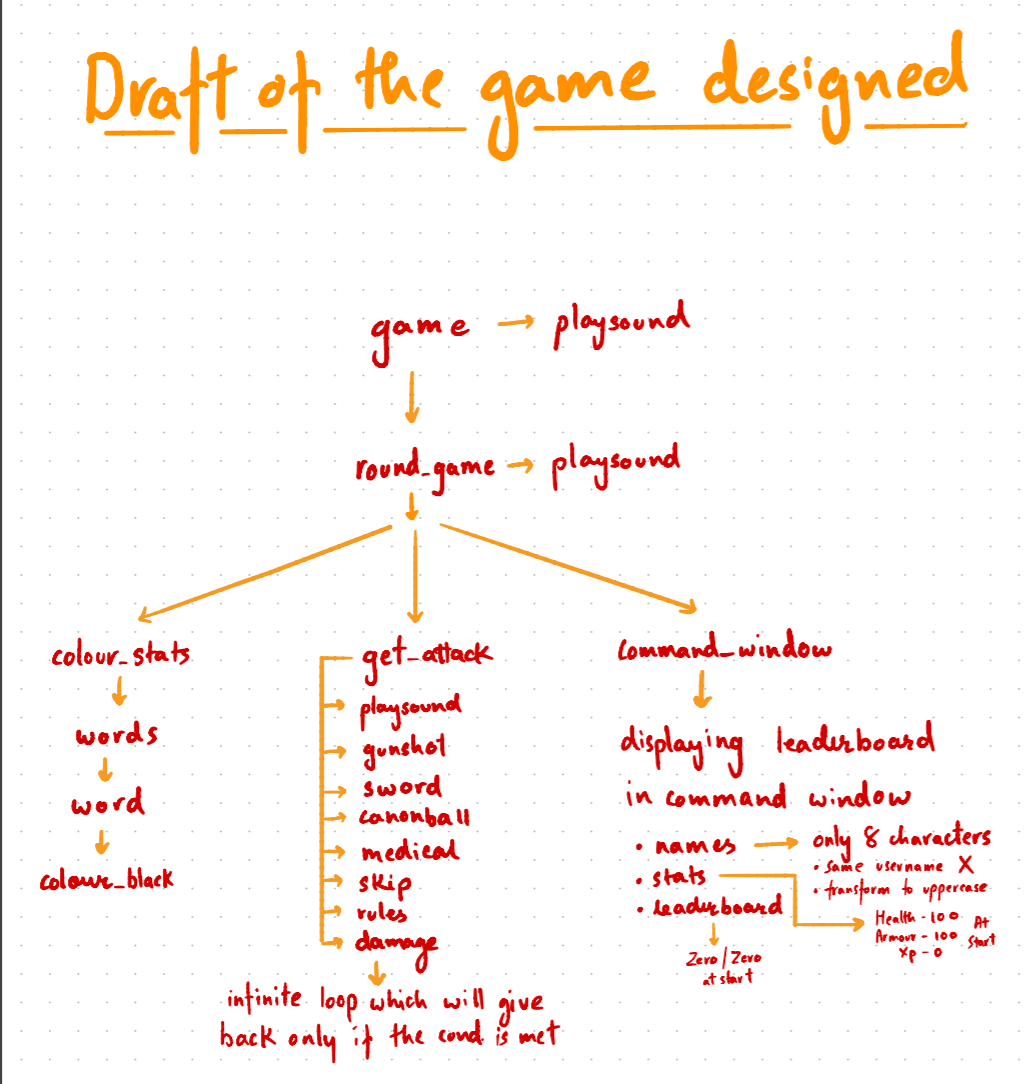 Draft of the game designed
game → playsound
round_game → playsound
colour_stats
words
word
colour_black
get_attack
playsound
gunshot
sword
canonball
medical
skip
rules
damage
infinite loop which will give
back only if the cond is met
command_window
displaying leaderboard
in command window
• names → only 8 characters
• same username X
• transform to uppercase
• stats
Health - 100
Armour - 100
Xp - 0
At
start
• leaderboard
Zero / Zero
at start